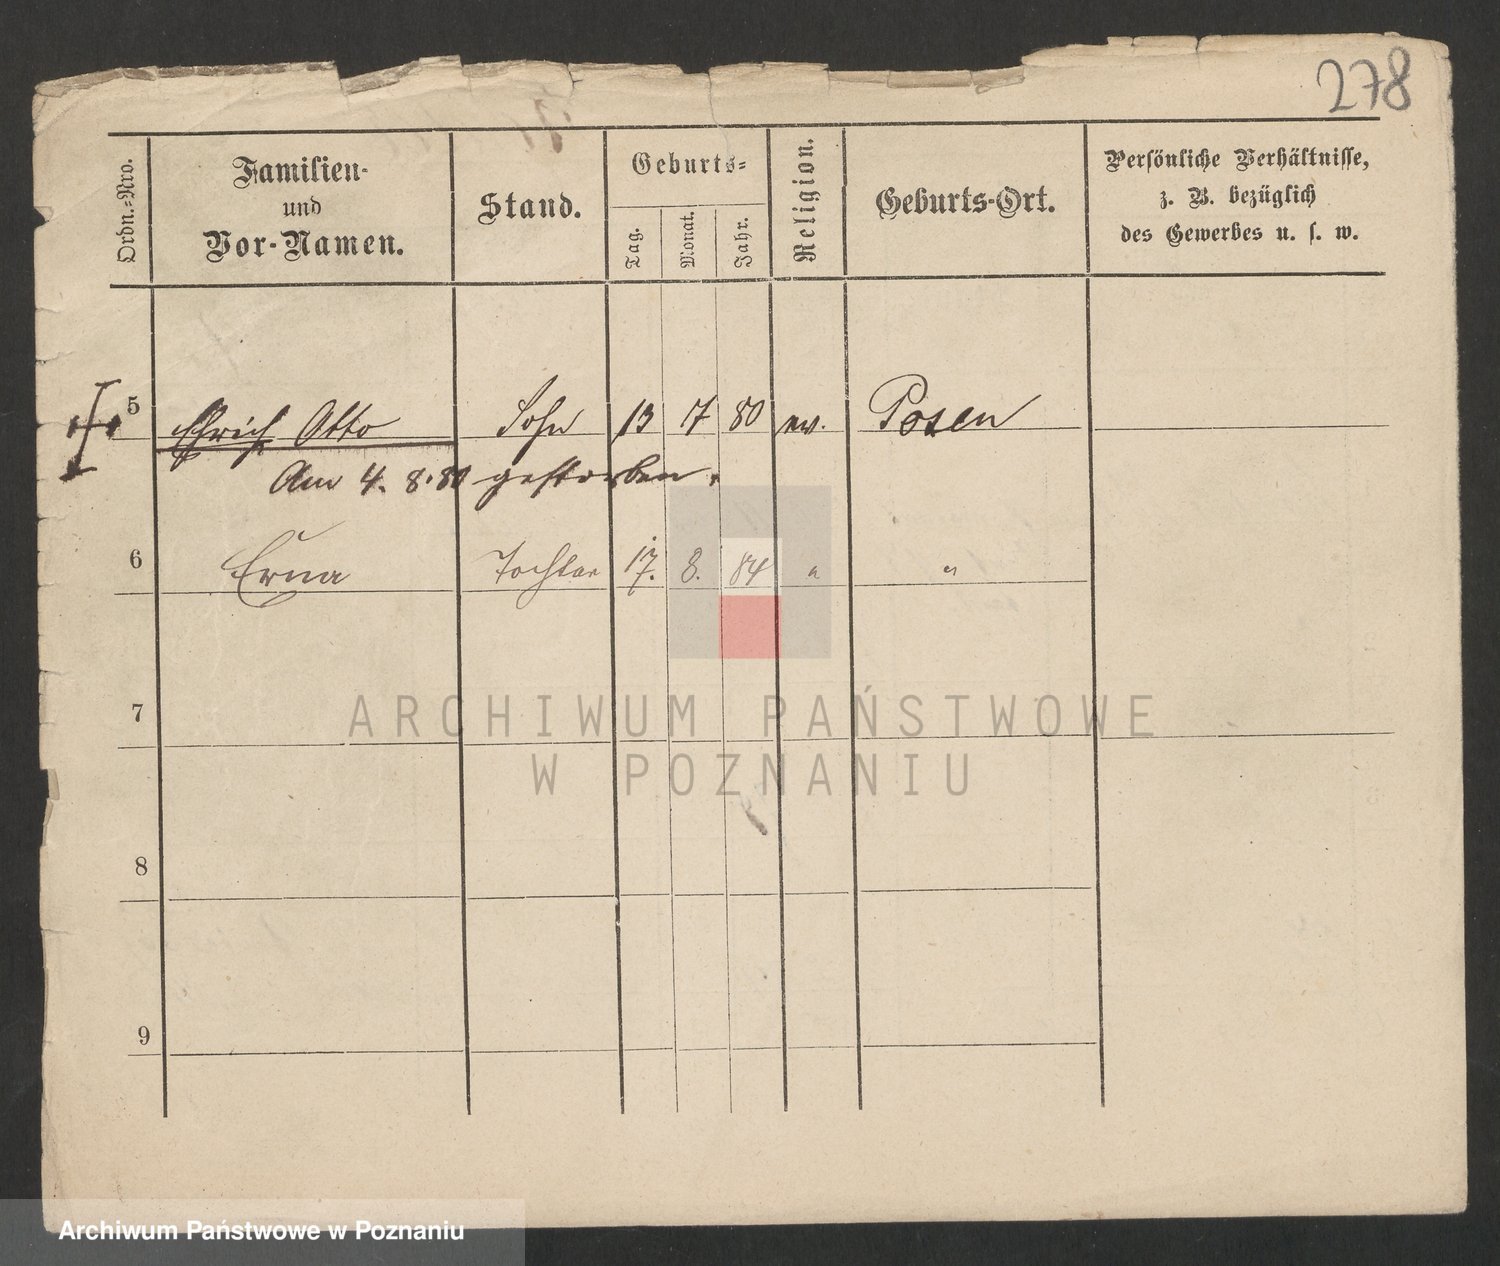 278
Ordn.-Nro.
Familien-
und
Vor-Namen.
Stand.
Geburts-
Tag.
Monat.
Jahr.
Religion.
Geburts-Ort.
Persönliche Verhältnisse,
z. B. bezüglich
des Gewerbes u. s. w.
5 Erich Otto Sohn 13 7 80 ev. Posen
Am 4. 8. 80 gestorben.
6 Erna Tochter 17. 8. 84 " "
7
8
9
ARCHIWUM PAŃSTWOWE
W POZNANIU
Archiwum Państwowe w Poznaniu